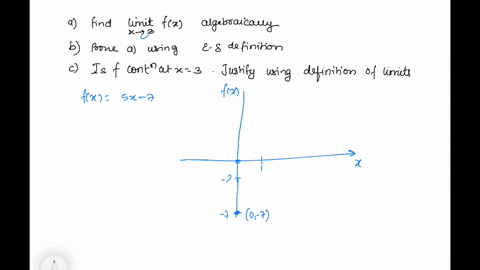 a) Find limit f(x) algebraically
x→3
b) Prove a) using ε-δ definition
c) Is f contⁿ at x=3. Justify using definition of limits
f(x) = 5x-7
f(x)
1
x
-2
-7 (0,-7)